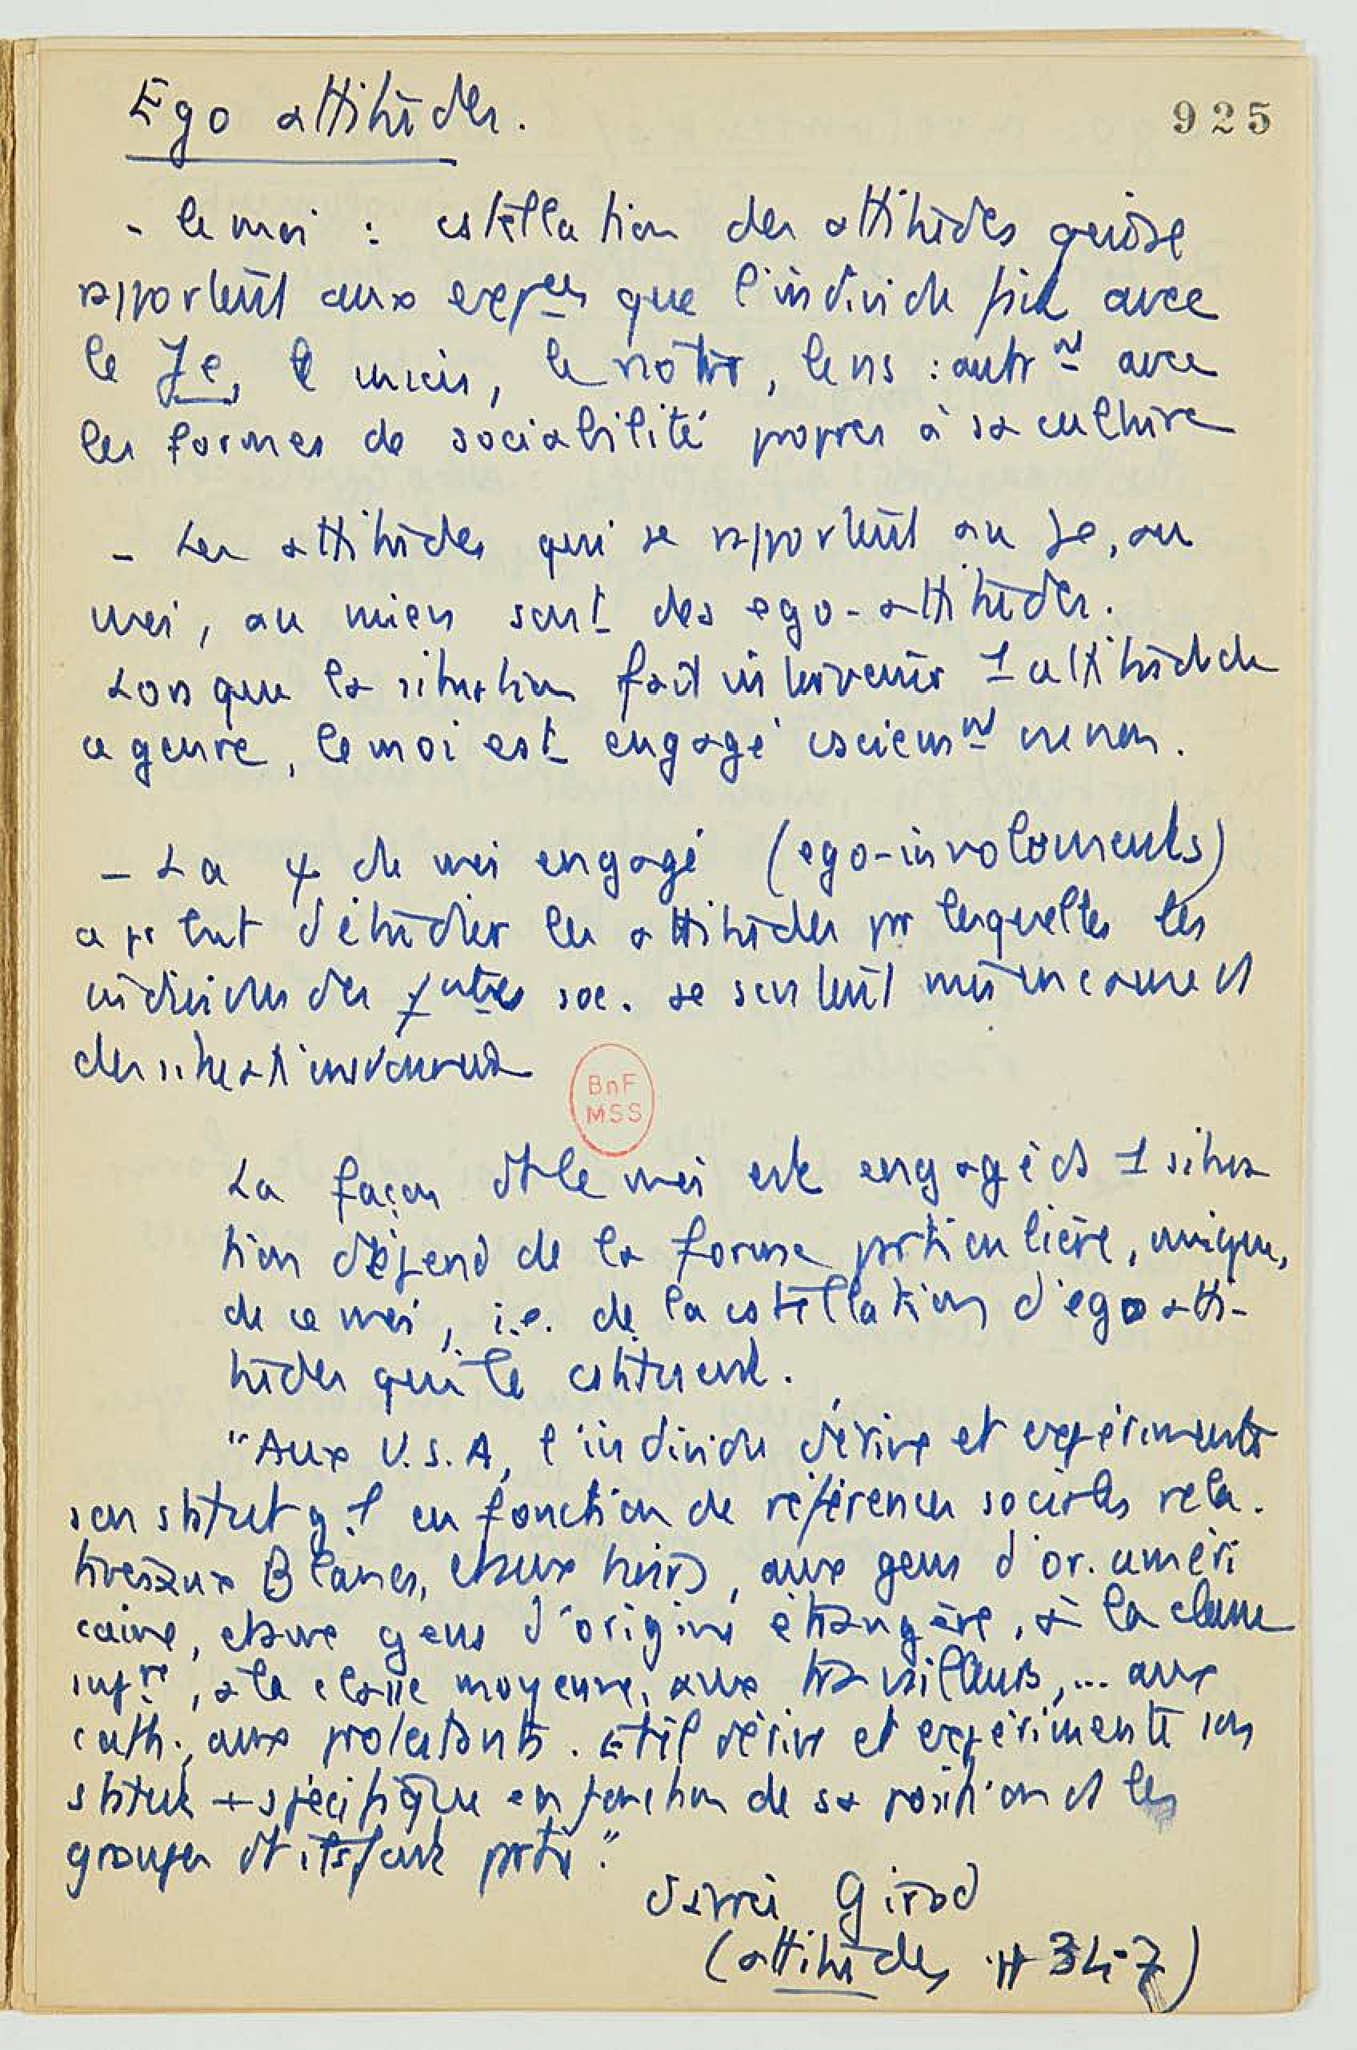 Ego attitudes.
925
- le moi : cstellation des attitudes qui se
rapportent aux expces que l'individu fait avec
le Je, le mien, le nôtre, le ns : autrnt avec
les formes de sociabilité propres à sa culture
- Les attitudes qui se rapportent au Je, au
moi, au mien sont des ego-attitudes.
Lorsque la situation fait intervenir 1 attitude de
ce genre, le moi est engagé csciemnt ou non.
- La de moi engagé (ego-involvements)
a pr but d'étudier les attitudes par lesquelles les
individus des soc. se sentent
des situat
La façon dt le moi est engagé ds 1 situa
tion dépend de la forme particulière, unique,
de ce moi, i.e. de la cstellation d'ego atti-
tudes qui le cstituent.
"Aux U.S.A, l'individu dérive et expérimente
son statut gl en fonction de références sociales rela.
tives aux Blancs, et aux noirs, aux gens d'or. améri
caine, et aux gens d'origine étrangère, à la classe
infre, à la classe moyenne, aux travailleurs, ... aux
cath., aux protestants. Et il dérive et expérimente son
statut + spécifique en fonction de sa position ds les
groupes dt il fait partie."
Girod
(attitudes # 34-7)
BnF
MSS